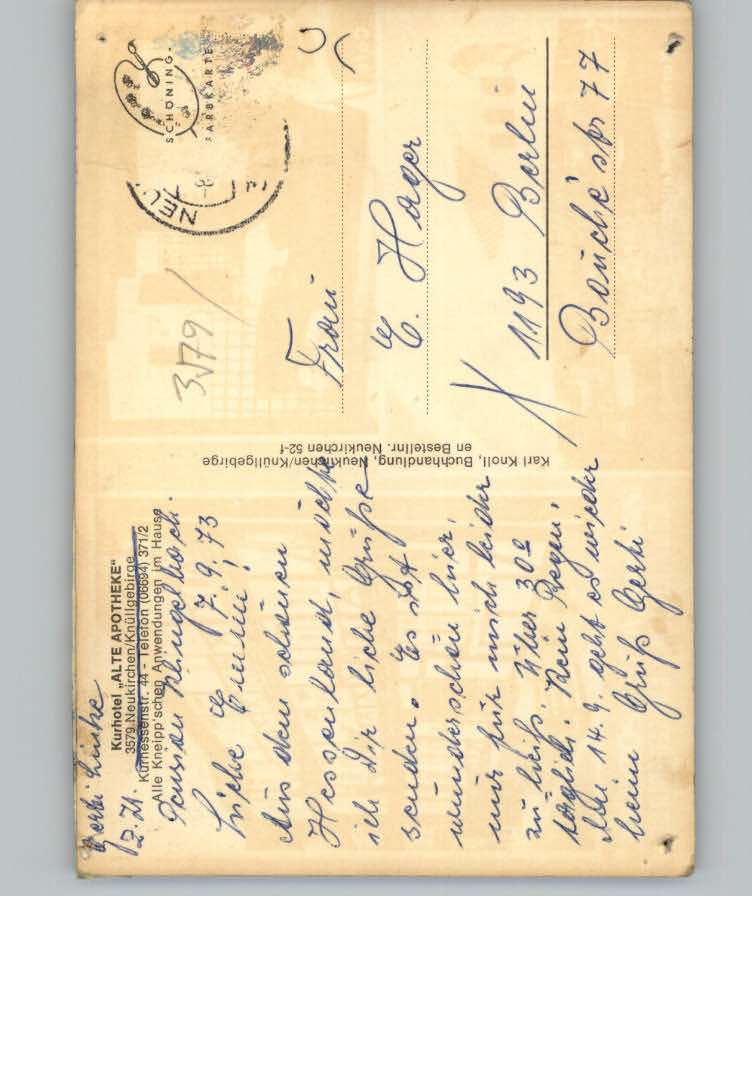 Gerti Linke
z. Zt.
Kurhotel „ALTE APOTHEKE"
3579 Neukirchen/Knüllgebirge
Kurhessenstr. 44 - Telefon (06694) 371/2
Alle Kneipp'schen Anwendungen im Hause
Pension Klingelbach.
7.9.73
Liebe Emmi!
Aus dem schönen
Hessenland, möchte
ich Dir liebe Grüße
senden. Es ist
wunderschön hier,
nur für mich leider
zu heiß. Über 30°
täglich. Kein Regen!
Am 14.9. geht es wieder
heim Gruß Gerti
Karl Knoll, Buchhandlung, Neukirchen/Knüllgebirge
en Bestellnr. Neukirchen 52-f
3579
NEU
SCHÖNING
FARBKARTE
Frau
E. Hager
1193 Berlin
Bouchéstr 77